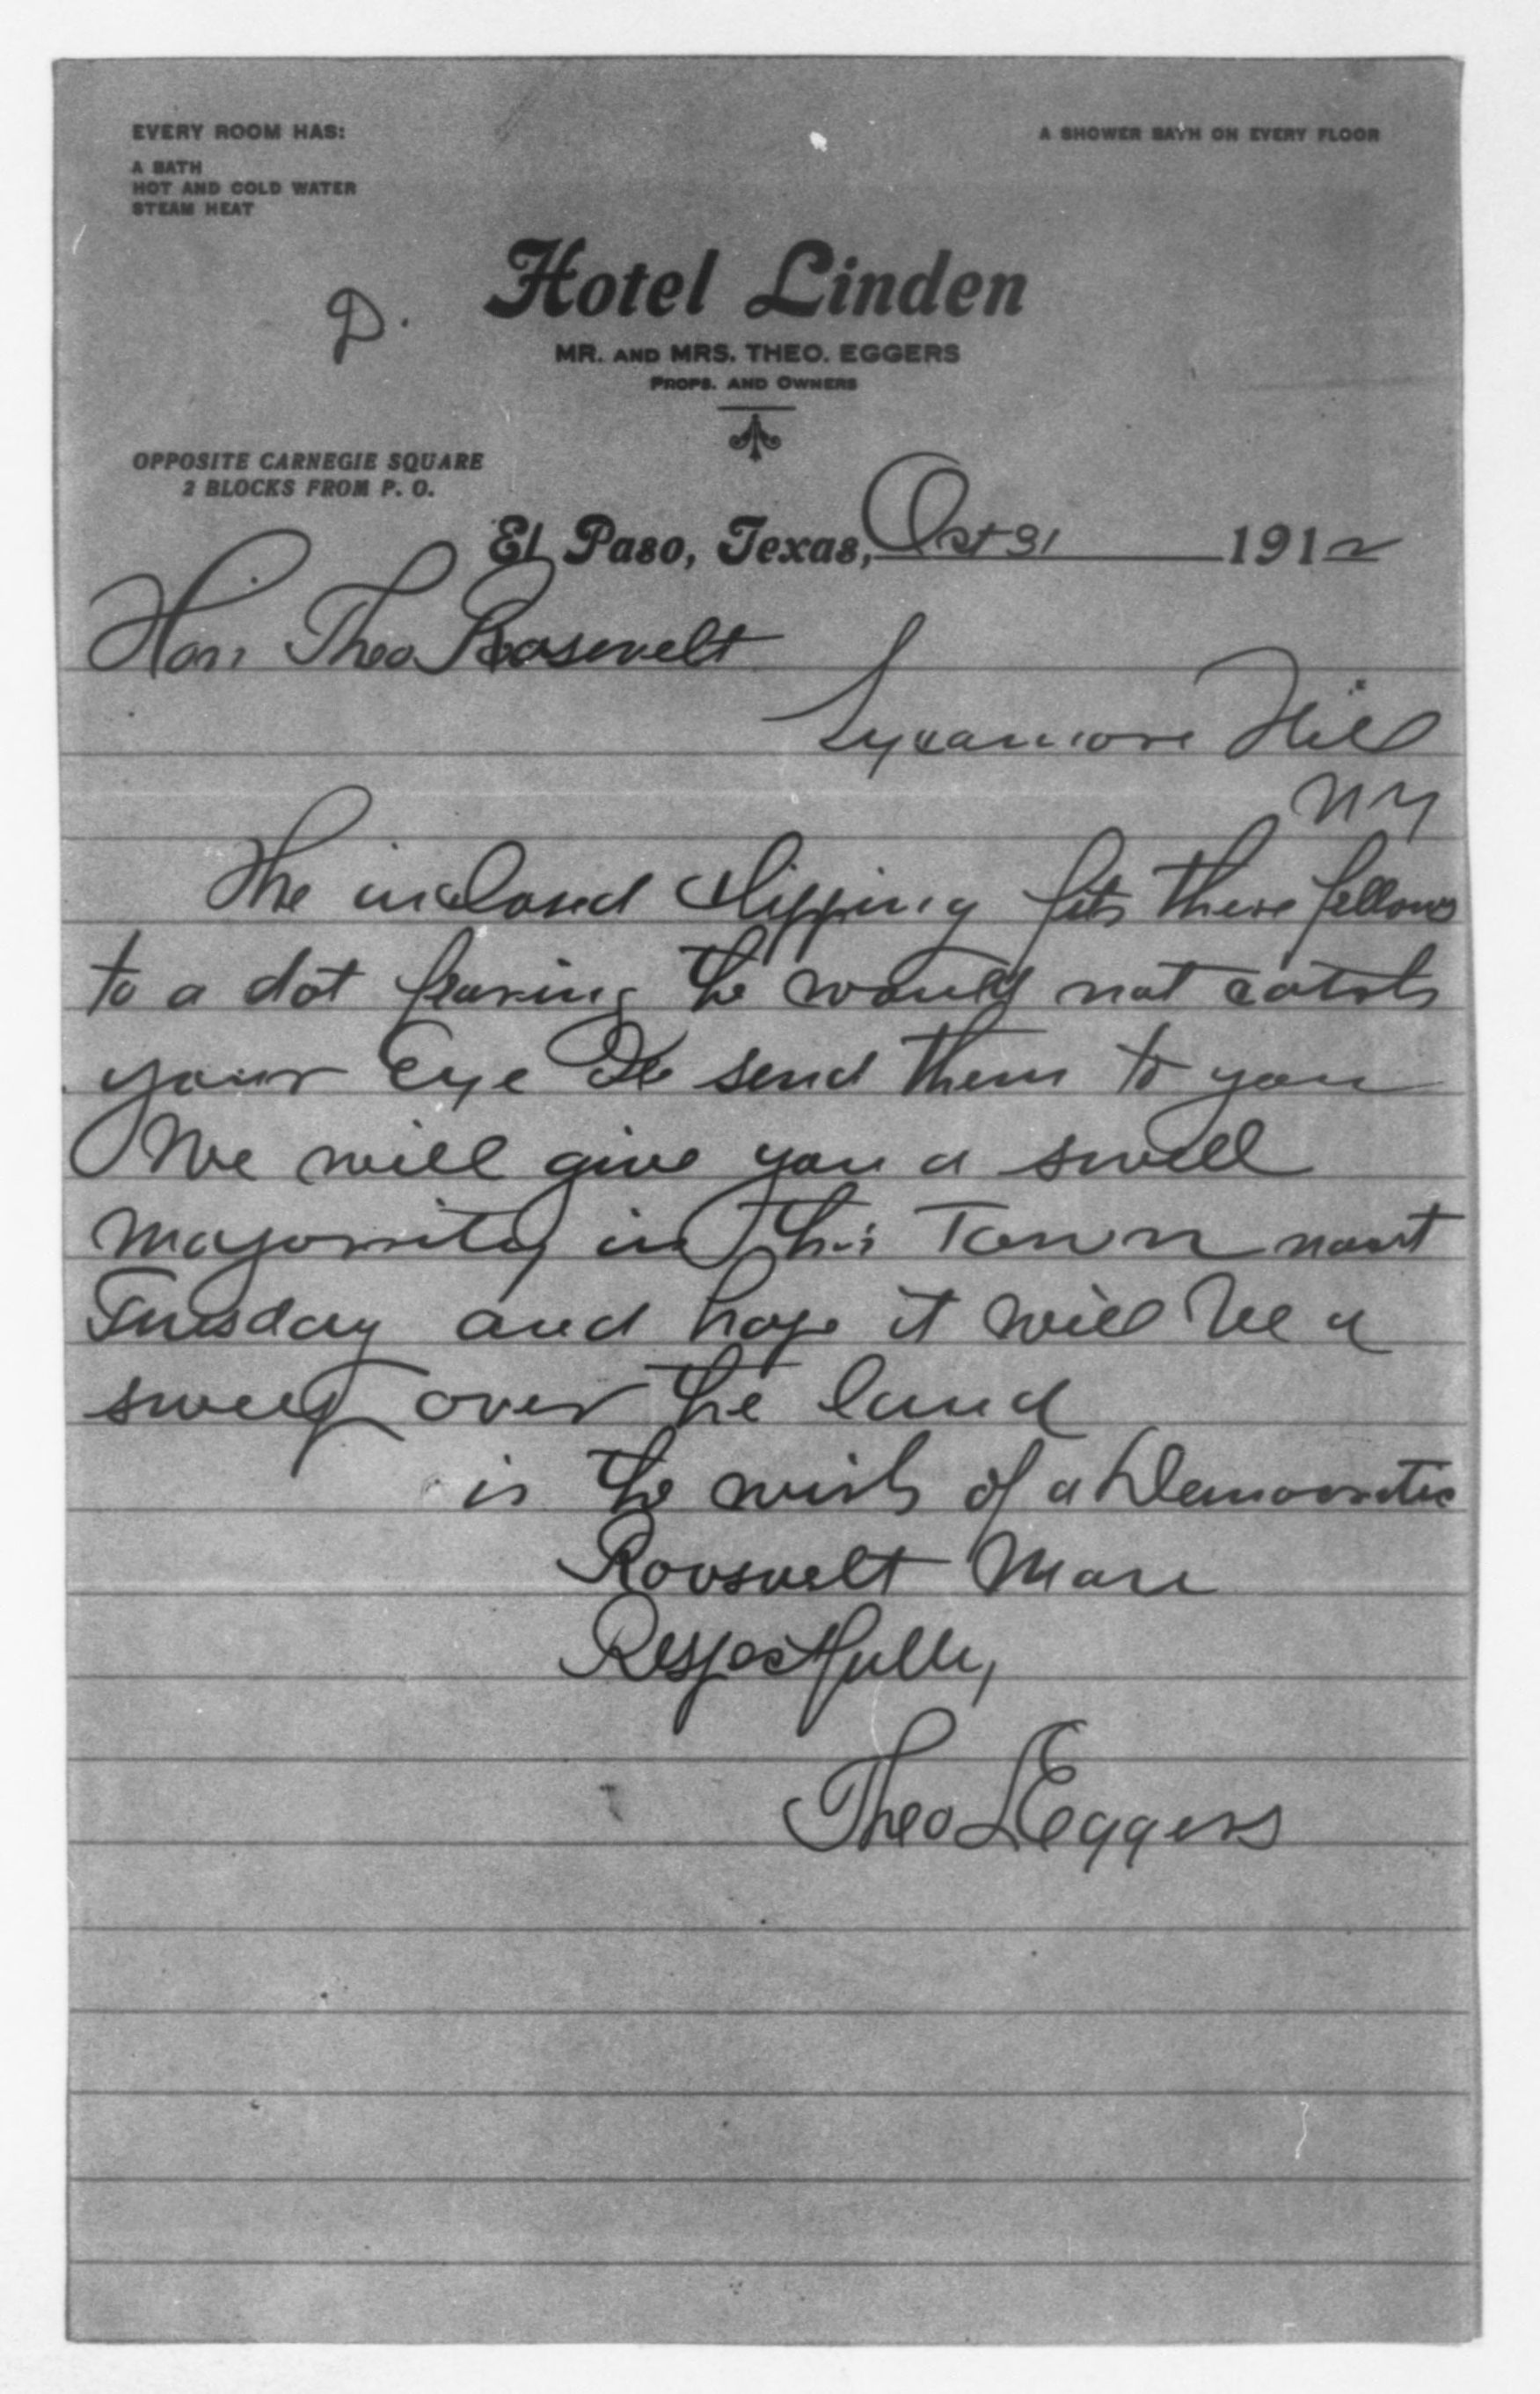 EVERY ROOM HAS:
A BATH
HOT AND COLD WATER
STEAM HEAT
A SHOWER BATH ON EVERY FLOOR
D.
Hotel Linden
MR. AND MRS. THEO. EGGERS
PROPS. AND OWNERS
OPPOSITE CARNEGIE SQUARE
2 BLOCKS FROM P. O.
El Paso, Texas, Oct 31 1912
Hon. Theo Roosevelt
Sycamore Hill
NY
The inclosed clipping fits these fellows
to a dot fearing the would not catch
your Eye I send them to you
We will give you a swell
Majority in this Town next
Tuesday and hope it will be a
sweep over the land
is the wish of a Democratic
Roosvelt Man
Respectfully,
Theo L Eggers